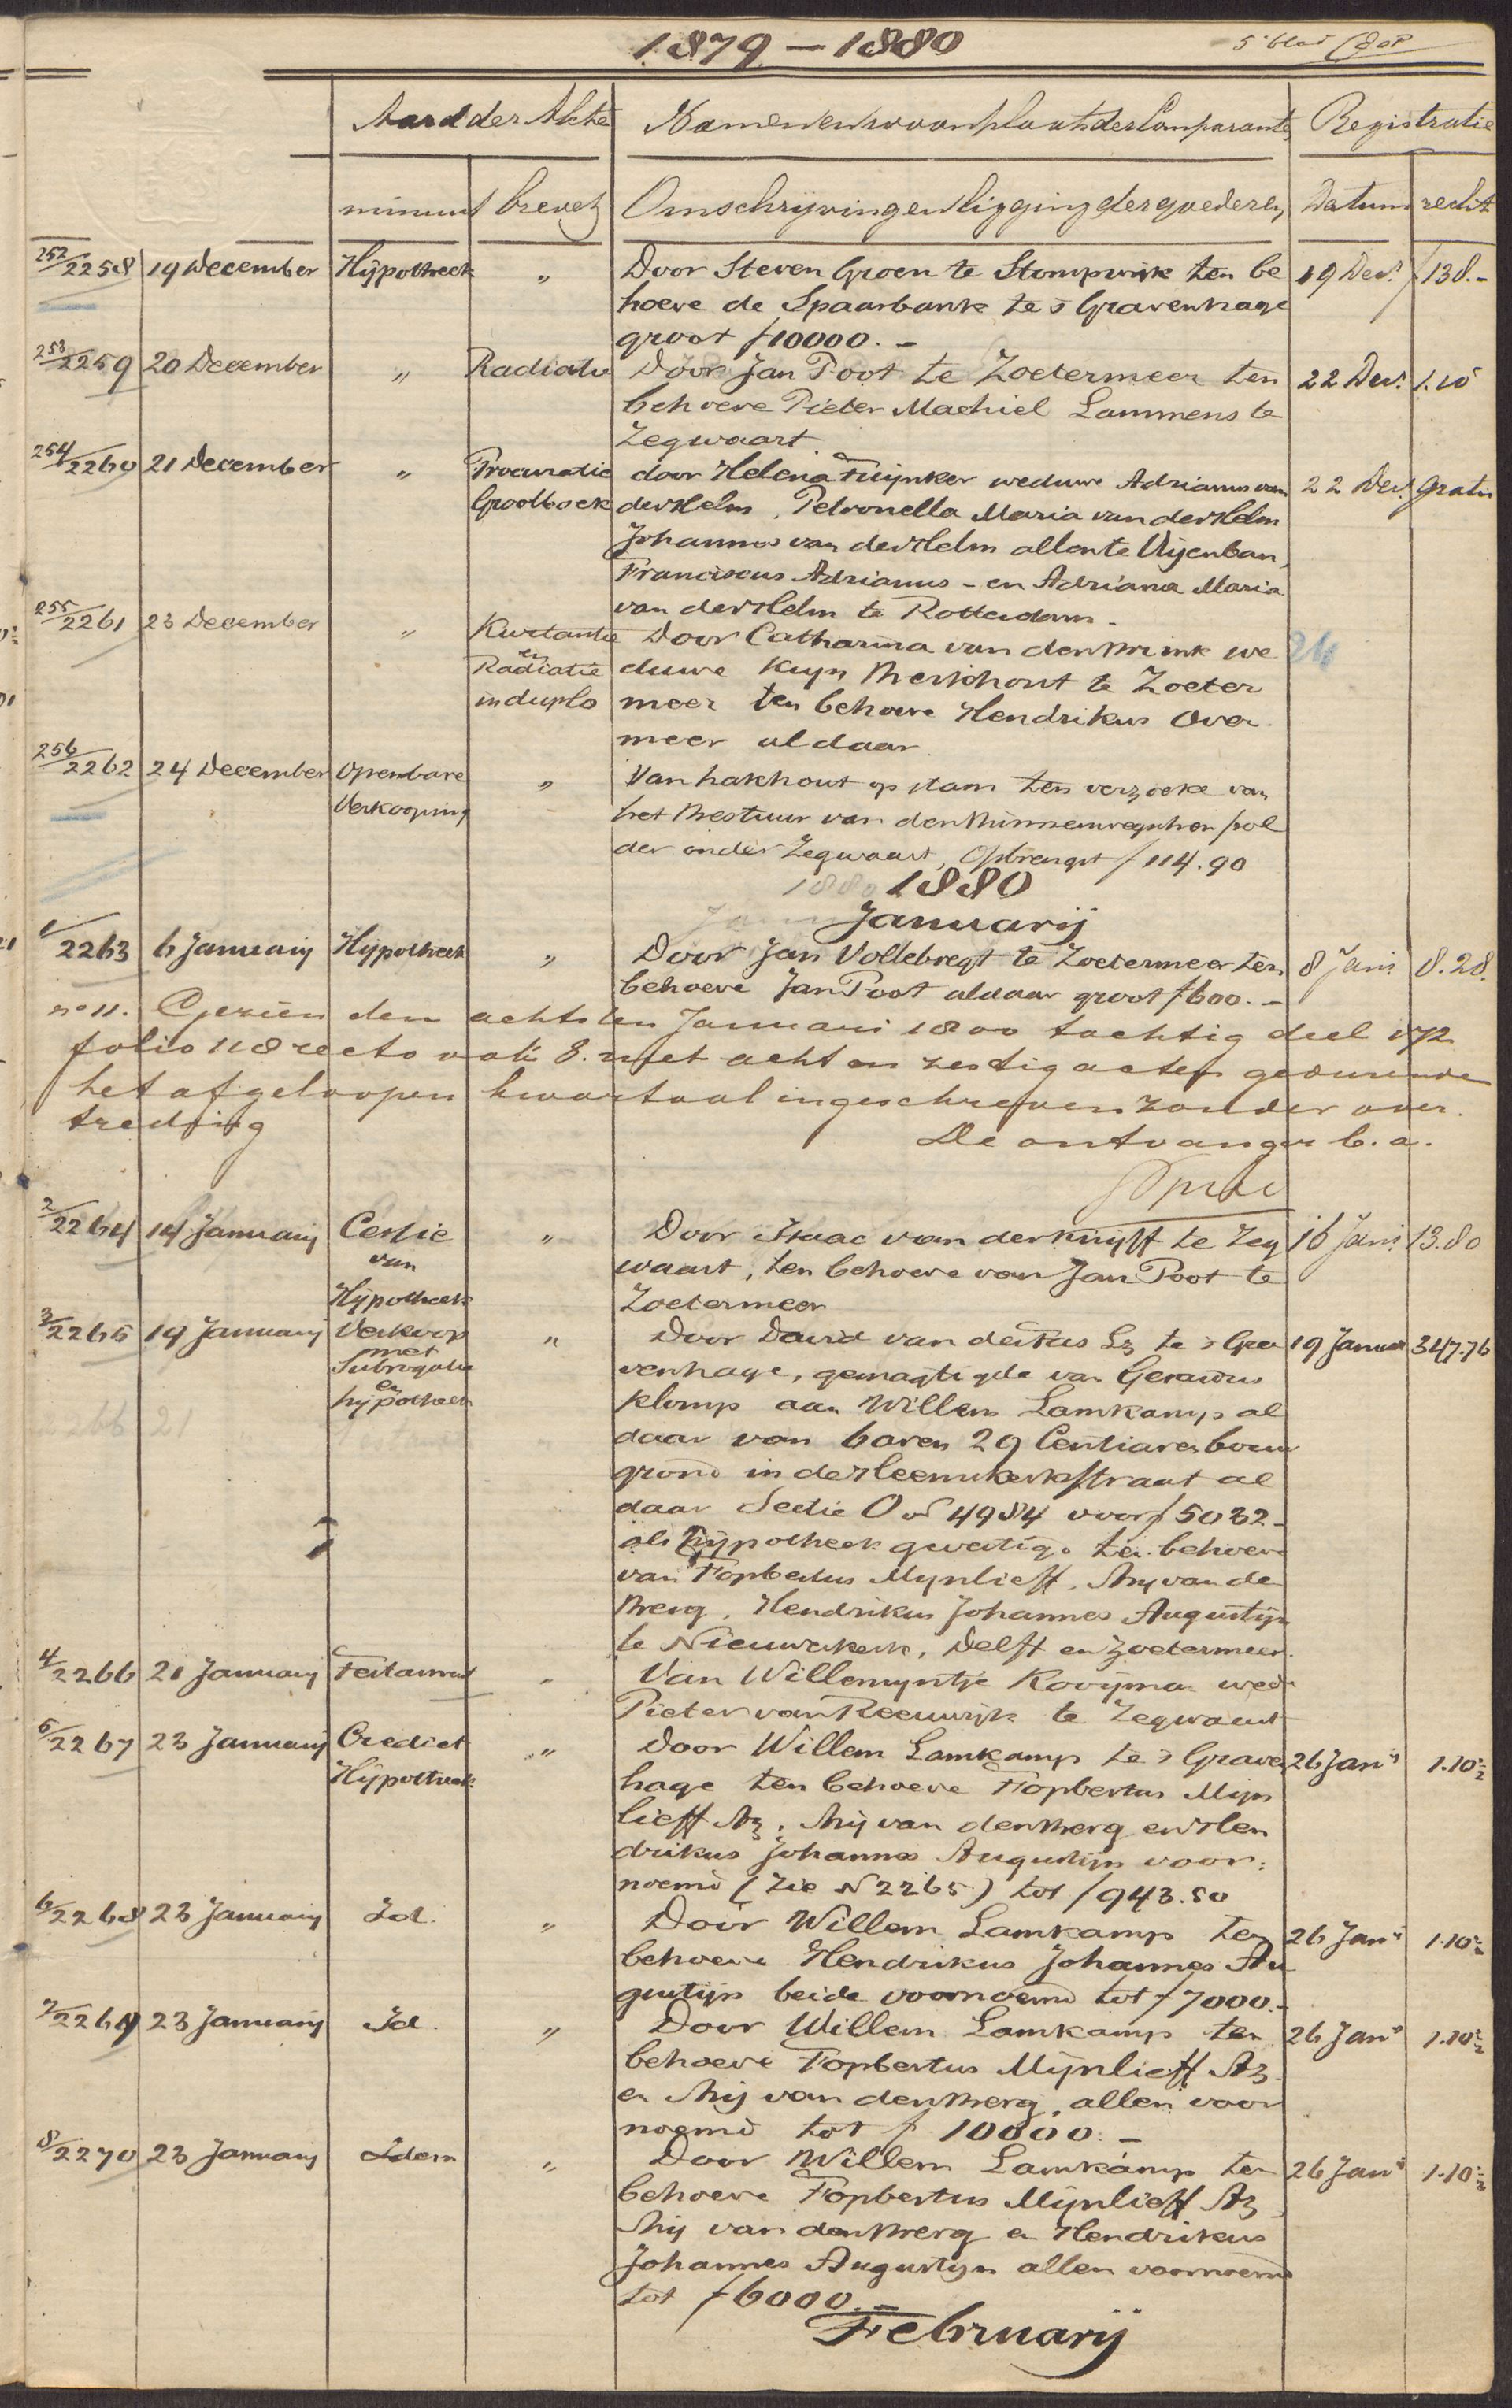 1879 - 1880
5e blad
Aard der Akte Namen en woonplaats der Comparanten Registratie
minuut brevet Omschrijving en ligging der goederen Datum recht
252/2258 19 December Hypotheek " Door Steven Groen te Stompwijk ten be 19 Decr. f 138.-
hoeve de Spaarbank te 's Gravenhage
groot f 10000.-
253/2259 20 December " Radiatie Door Jan Poot te Zoetermeer ten 22 Decr. 1.10
behoeve Pieter Machiel Lammens te
Zegwaart
254/2260 21 December " Procuratie door Helena Tuijnker weduwe Adrianus van 22 Decr. gratis
Grootboek der Helm, Petronella Maria van der Helm
Johannes van der Helm allen te
Franciscus Adrianus - en Adriana Maria
van der Helm te Rotterdam.
255/2261 23 December " Kwitantie Door Catharina van den Brink we 26
en
Radiatie duwe Krijn Berkhout te Zoeter
in duplo meer ten behoeve Hendrikus Over
meer aldaar
256/2262 24 December Openbare " Van hakhout op stam ten verzoeke van
Verkooping het Bestuur van den Binnenwegschen pol
der onder Zegwaart, Opbrengst f 114.90
1880
Januarij
1/2263 6 Januarij Hypotheek " Door Jan Vollebregt te Zoetermeer ten 8 Jan. 8.28.
behoeve Jan Poot aldaar groot f 600.-
no 11. Gezien den achtsten Januari 1800 tachtig deel 172
folio 118 recto vak 8. met acht en zestig acten gedurende
het afgeloopen kwartaal ingeschreven zonder over.
treding
De ontvanger b.a.
2/2264 14 Januarij Cessie " Door Isaac van der Kruijff te Zeg 16 Jan. 13.80
van waart, ten behoeve van Jan Poot te
Hypotheek Zoetermeer
3/2265 19 Januarij Verkoop " Door David van der Kas Lz te 's Gra 19 Januari 347.76
met
Subrogatie venhage, gemagtigde van Gerardus
en
hypotheek Klomp aan Willem Lamkamp al
daar van 6 aren 29 Centiaren bouw
grond in de Heemskerkstraat al
daar Sectie O no 4984 voor f 5032.-
als hypotheek gevestigd ten behoeve
van Fopbertus Mynlieff, Arij van de
Berg, Hendrikus Johannes Augustijn
te Nieuwerkerk, Delft en Zoetermeer.
4/2266 21 Januarij Testament " Van Willemyntje Kooijman wed
Pieter van Reeuwijk te Zegwaart
5/2267 23 Januarij Crediet " Door Willem Lamkamp te 's Graven 26 Jan. 1.10½
Hypotheek hage ten behoeve Fopbertus Mijn
lieff Az, Arij van den Berg en Hen
drikus Johannes Augustijn voor:
noemd (Zie No 2265) tot f 943.50
6/2268 23 Januarij Id. " Door Willem Lamkamp ten 26 Jan. 1.10½
behoeve Hendrikus Johannes Au
gustijn beide voornoemd tot f 7000.-
7/2269 23 Januarij Id. " Door Willem Lamkamp ten 26 Jan. 1.10½
behoeve Fopbertus Mijnlieff Az
en Arij van den Berg, allen voor
noemd tot f 10000.-
8/2270 23 Januarij Idem " Door Willem Lamkamp ten 26 Jan. 1.10½
behoeve Fopbertus Mijnlieff Az
Arij van den Berg en Hendrikus
Johannes Augustyn allen voornoemd
tot f 6000.-
Februarij